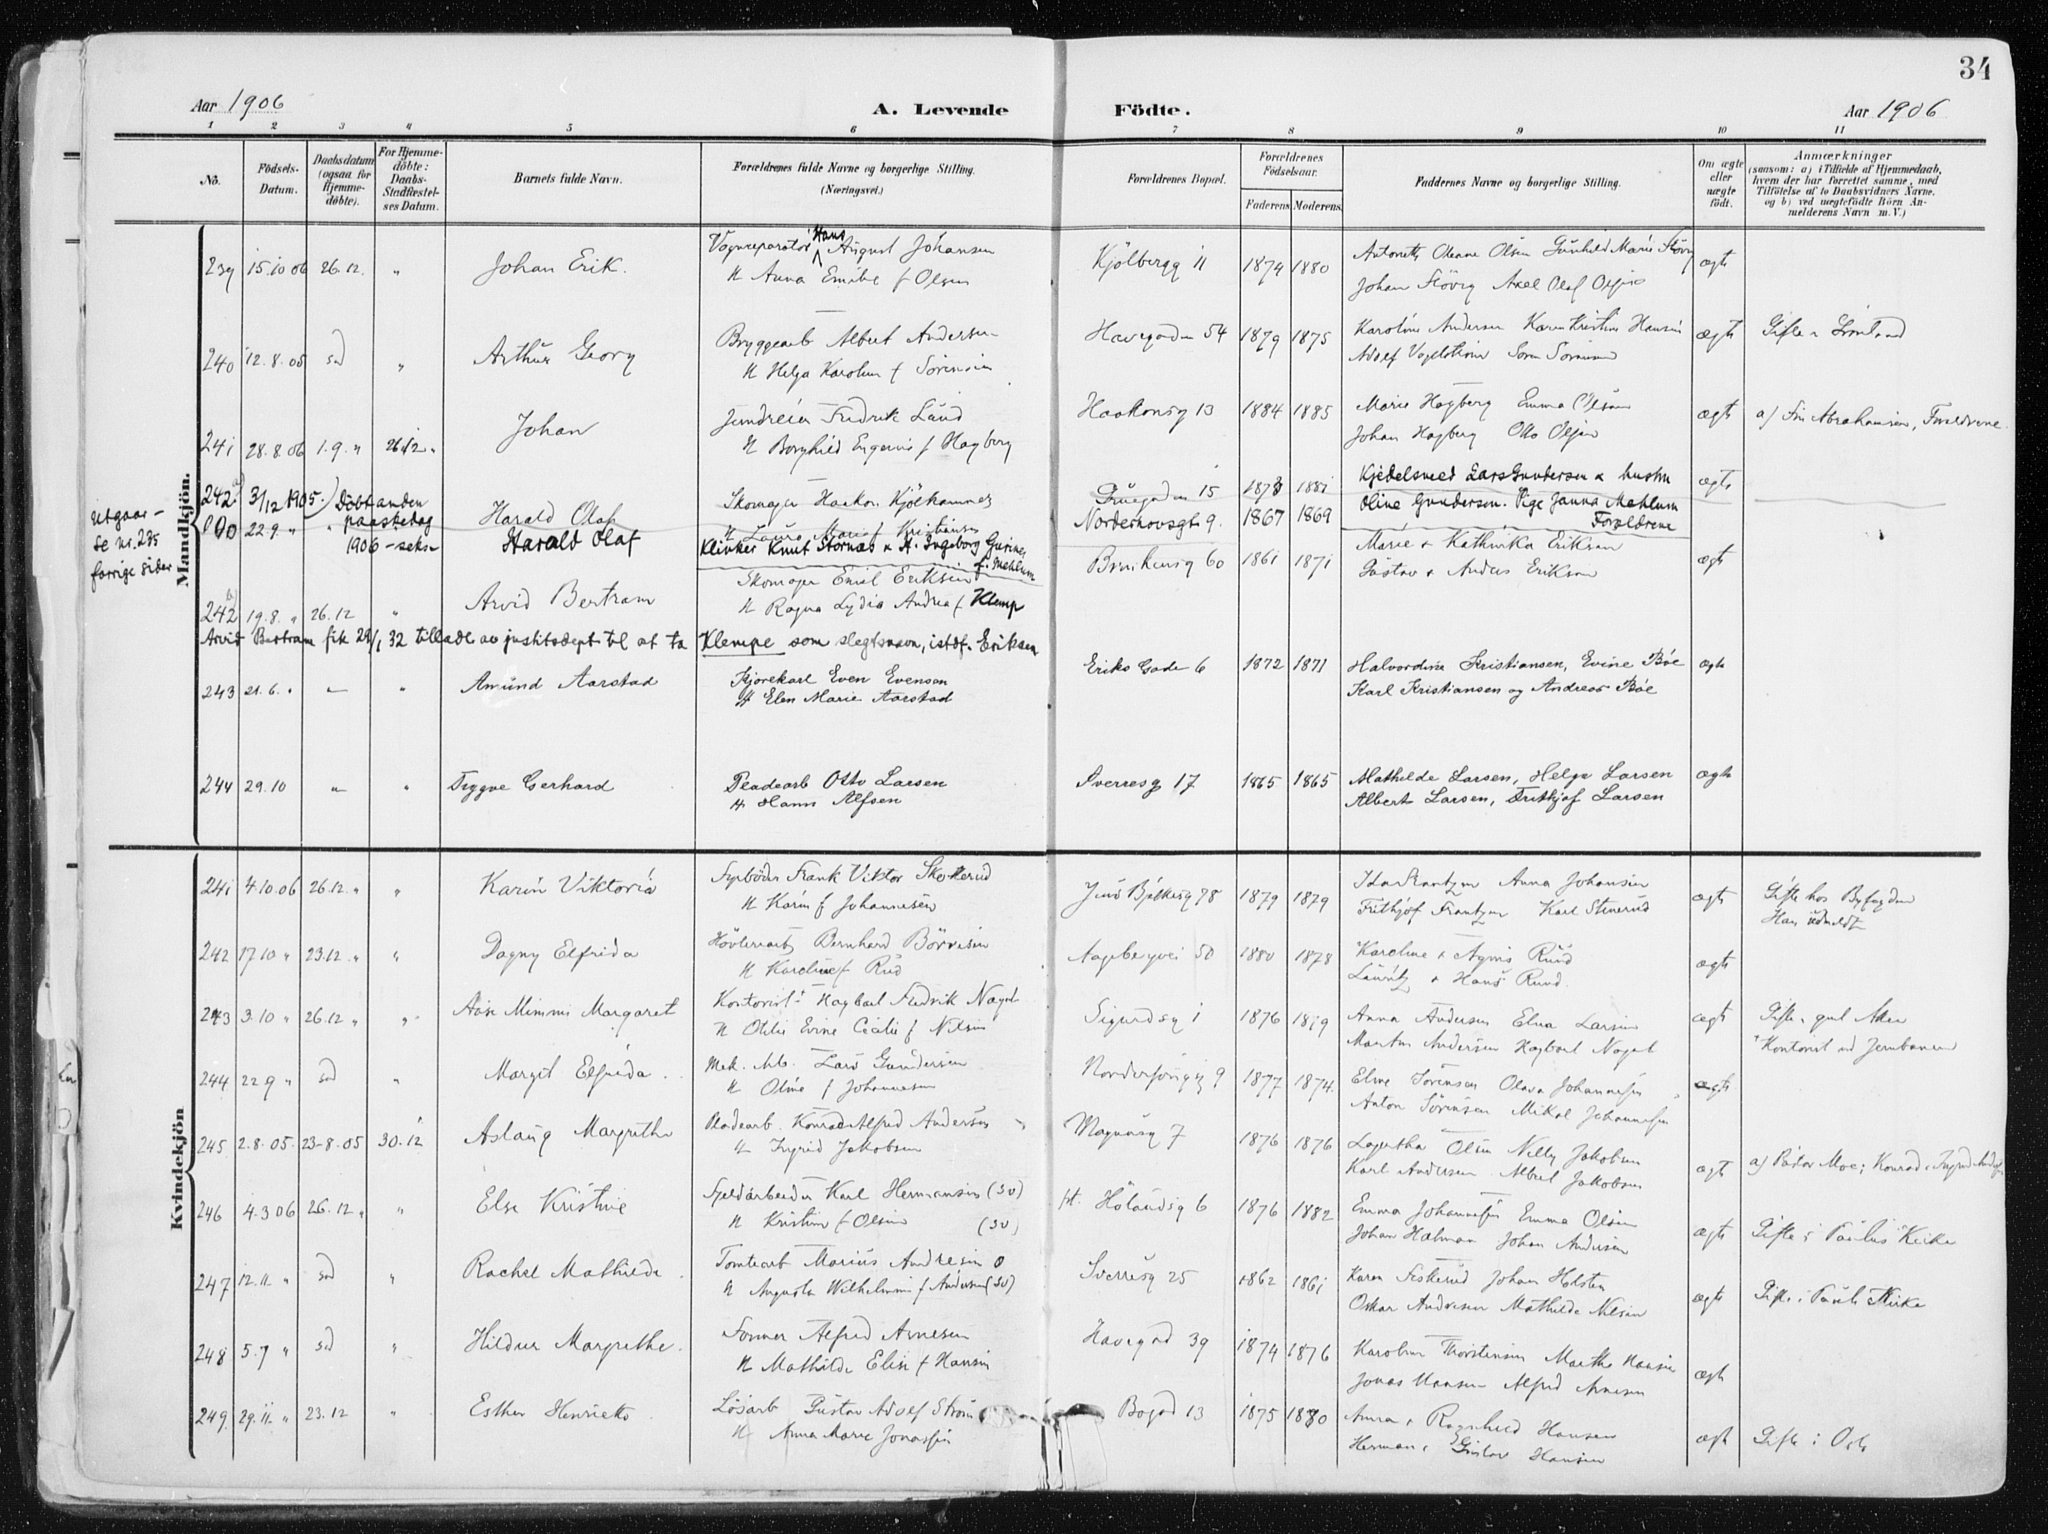 34
Aar 1906 A. Levende Födte. Aar 1906
1 2 3 4 5 6 7 8 9 10 11
No. Födsels-Datum. Daabsdatum (ogsaa for Hjemmedöbte). For Hjemmedöbte: Daabs-Stadfæstelses Datum. Barnets fulde Navn. Forældrenes fulde Navne og borgerlige Stilling. (Næringsvei.) Forældrenes Bopæl. Forældrenes Födselsaar. Faderens Moderens. Faddernes Navne og borgerlige Stilling. Om ægte eller uægte födt. Anmærkninger (saasom: a) i Tilfælde af Hjemmedaab, hvem der har forrettet samme, med Tilföielse af to Daabsvidners Navne, og b) ved uægtefödte Börn Anmelderens Navn m. V.)
Mandkjön.
239 15.10 06 26.12. " Johan Erik. Vognreparatör Hans August Johansen Kjölbergg 11 1874 1880 Olsen Gunhild Marie ægt
H Anna Emilie f Olsen Johan Axel Olaf
240 12.8.05 sd " Arthur Georg Bryggearb Albert Andersen Havegaden 54 1879 1875 Karoline Andersen Karen Kristine Hansen ægt Gifte i Grönland
H Helga Karoline f Sörensen Adolf
241 28.8.06 1.9. " 26.12 " Johan Fredrik Lund Haakonsg 13 1884 1885 Marie Hagberg Emma Olsen ægt a) Abrahamsen, Forældrene.
H Borghild f Hagberg Johan Hagberg Otto Olsen
Utgaar - se nr. 235 forrige sider
242 a) 3/12 1905.) Döbt anden paaskedag 1906 - se Skomager Haakon Gruegaden 15 1873 1881 Kjedelsmed Lars Gundersen & hustru ægt
22.9 " Harald Olaf H Laura Marie f Kristiansen Norderhovsgt 9. 1867 1869 Oline Gundersen. Pige Janna Mehlum Forældrene
Harald Olaf Klinker Knut Stornæs & H. Ingeborg Gurine f. Mehlum
242 b) 19.8. " 26.12 " Arvid Bertram Skomager Emil Eriksen 60 1861 1871 Marie & Kathrinka Eriksen ægt
H Ragna Lydia Andrea f Klemp Gustav & Anders Eriksen
Arvid Bertram fik 29/1 32 tilladl. av justitsdept til at ta Klempe som slegtsnavn, istdf. Eriksen
243 21.6. " " Amund Aarstad Kjörekarl Even Evensen Eriks Gade 6 1872 1871 Halvordine Kristiansen, Evine Böe ægte
H Elen Marie Aarstad Karl Kristiansen og Andreas Böe
244 29.10 " " Trygve Gerhard Pladearb Otto Larsen Sverresg 17 1865 1865 Mathilde Larsen, Helga Larsen ægte
H Hanna Alfsen Albert Larsen, Fritkjof Larsen
Kvindekjön
241 4.10.06 26.12. " " Karin Viktoria Fyrböder Frank Viktor Skotterud Jens Bjelkesg 78 1879 1879 Ida Frantzen Anna Johansen ægt Gifte hos Byfogden
H Karin f Johannesen Frithjof Frantzen Karl Stuerud Han udmeldt
242 17.10 " 23.12. " " Dagny Elfrida Hövleriarb Bernhard Börresen Aagebergvei 50 1880 1878 Karoline & Agnes Ruud ægte
H Karoline f Rud Lauritz & Hans Ruud.
243 3.10 " 26.12 " " Aase Mimmi Margaret Kontorist Hagbart Fredrik Nagel Sigurdsg 1 1876 1879 Anna Andersen Elna Larsen ægt
H Otilie Evine Cecilie f Nilsen Andersen Hagbart Nagel Kontorist ved Jernbanen
244 22 9 " sd " Margit Elfrida. Mek. Arb. Lars Gundersen 9 1877 1874. Eline Sörensen Olava Johannesen ægt
H Oline f Johannesen Anton Sörensen Mikal Johannesen
245 2.8.05. 23-8.05 30.12 Aslaug Margrethe Pladearb. Konrad Alfred Andersen Magnusg 7 1876 1876 Lagertha Olsen Nelly Jakobsen ægt a) Pastor Moe;
H Ingrid Jakobsen Karl Andersen Albert Jakobsen
246 4.3 06 26.12 " " Else Kristine Karl Hermansen (30) Hölandsg 6 1876 1882 Emma Johannesen Emma Olsen ægt Gifte i Paulus Kirke
H Kristine f Olsen (30) Johan Halman Johan Andersen
247 12.11. " sd " Rachel Mathilde. Tomtearb Marius Andresen 0 Sverresg 25 1862 1861 Karen Johan Holsten ægt Gifte i Pauls Kirke
H Augusta Wilhelmine f Andersen (30) Oskar Andresen Mathilde Nilsen
248 5.7 " sd " Hildur Margrethe. Former Alfred Arnesen Havegad 39 1874 1876 Karoline Thorstensen Marthe Hansen ægt
H Mathilde Elise f Hansen Jonas Hansen Alfred Arnesen
249 29.11. " 23.12 " Esther Henriette Lösarb Gustav Adolf Ström Bogad 13 1875 1880 Anna & Ragnhild Hansen ægt Gifte i Oslo
H Anna Marie Jonassen Herman & Gustav Hansen